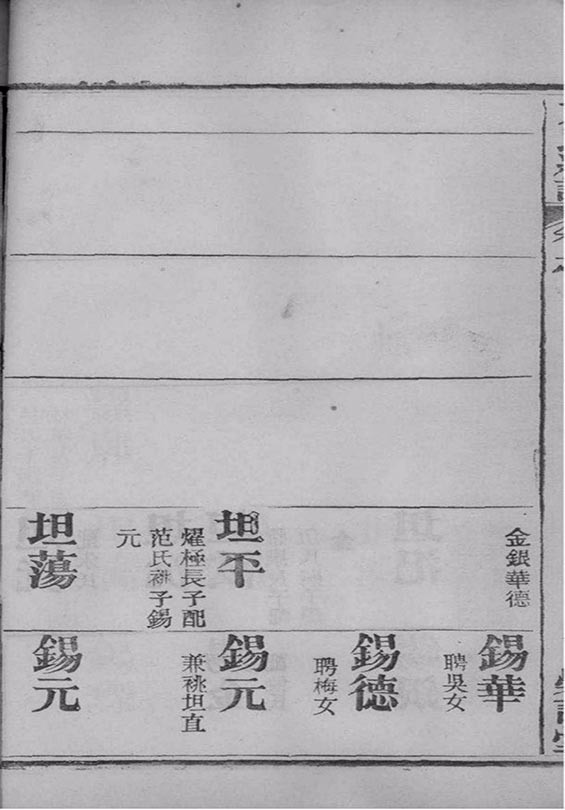 金銀華德
坦平
燿極長子配
范氏祧子錫
元
坦蕩
錫華
聘吳女
錫德
聘梅女
錫元
兼祧坦直
錫元